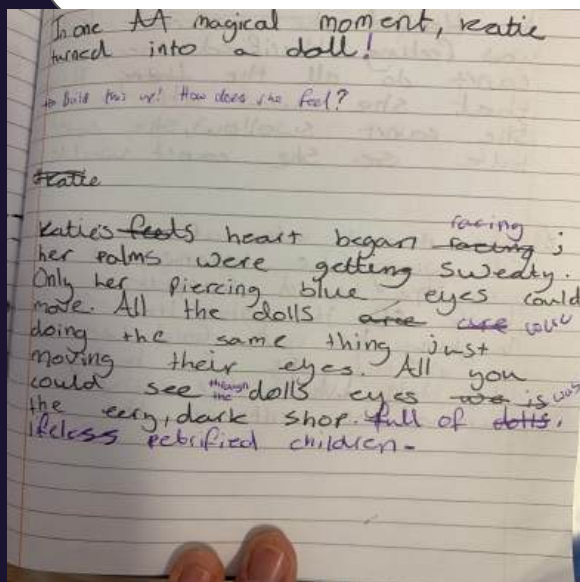 In one AA magical moment, Katie
turned into a doll!
to build this up! How does she feel?
Katie
Katie's feels heart began racing racing ;
her palms were getting sweaty.
Only her piercing blue eyes could
move. All the dolls are
doing the same thing just
moving their eyes. All you
could see through the dolls eyes is was
the eery, dark shop. full of dolls.
lifeless petrified children.